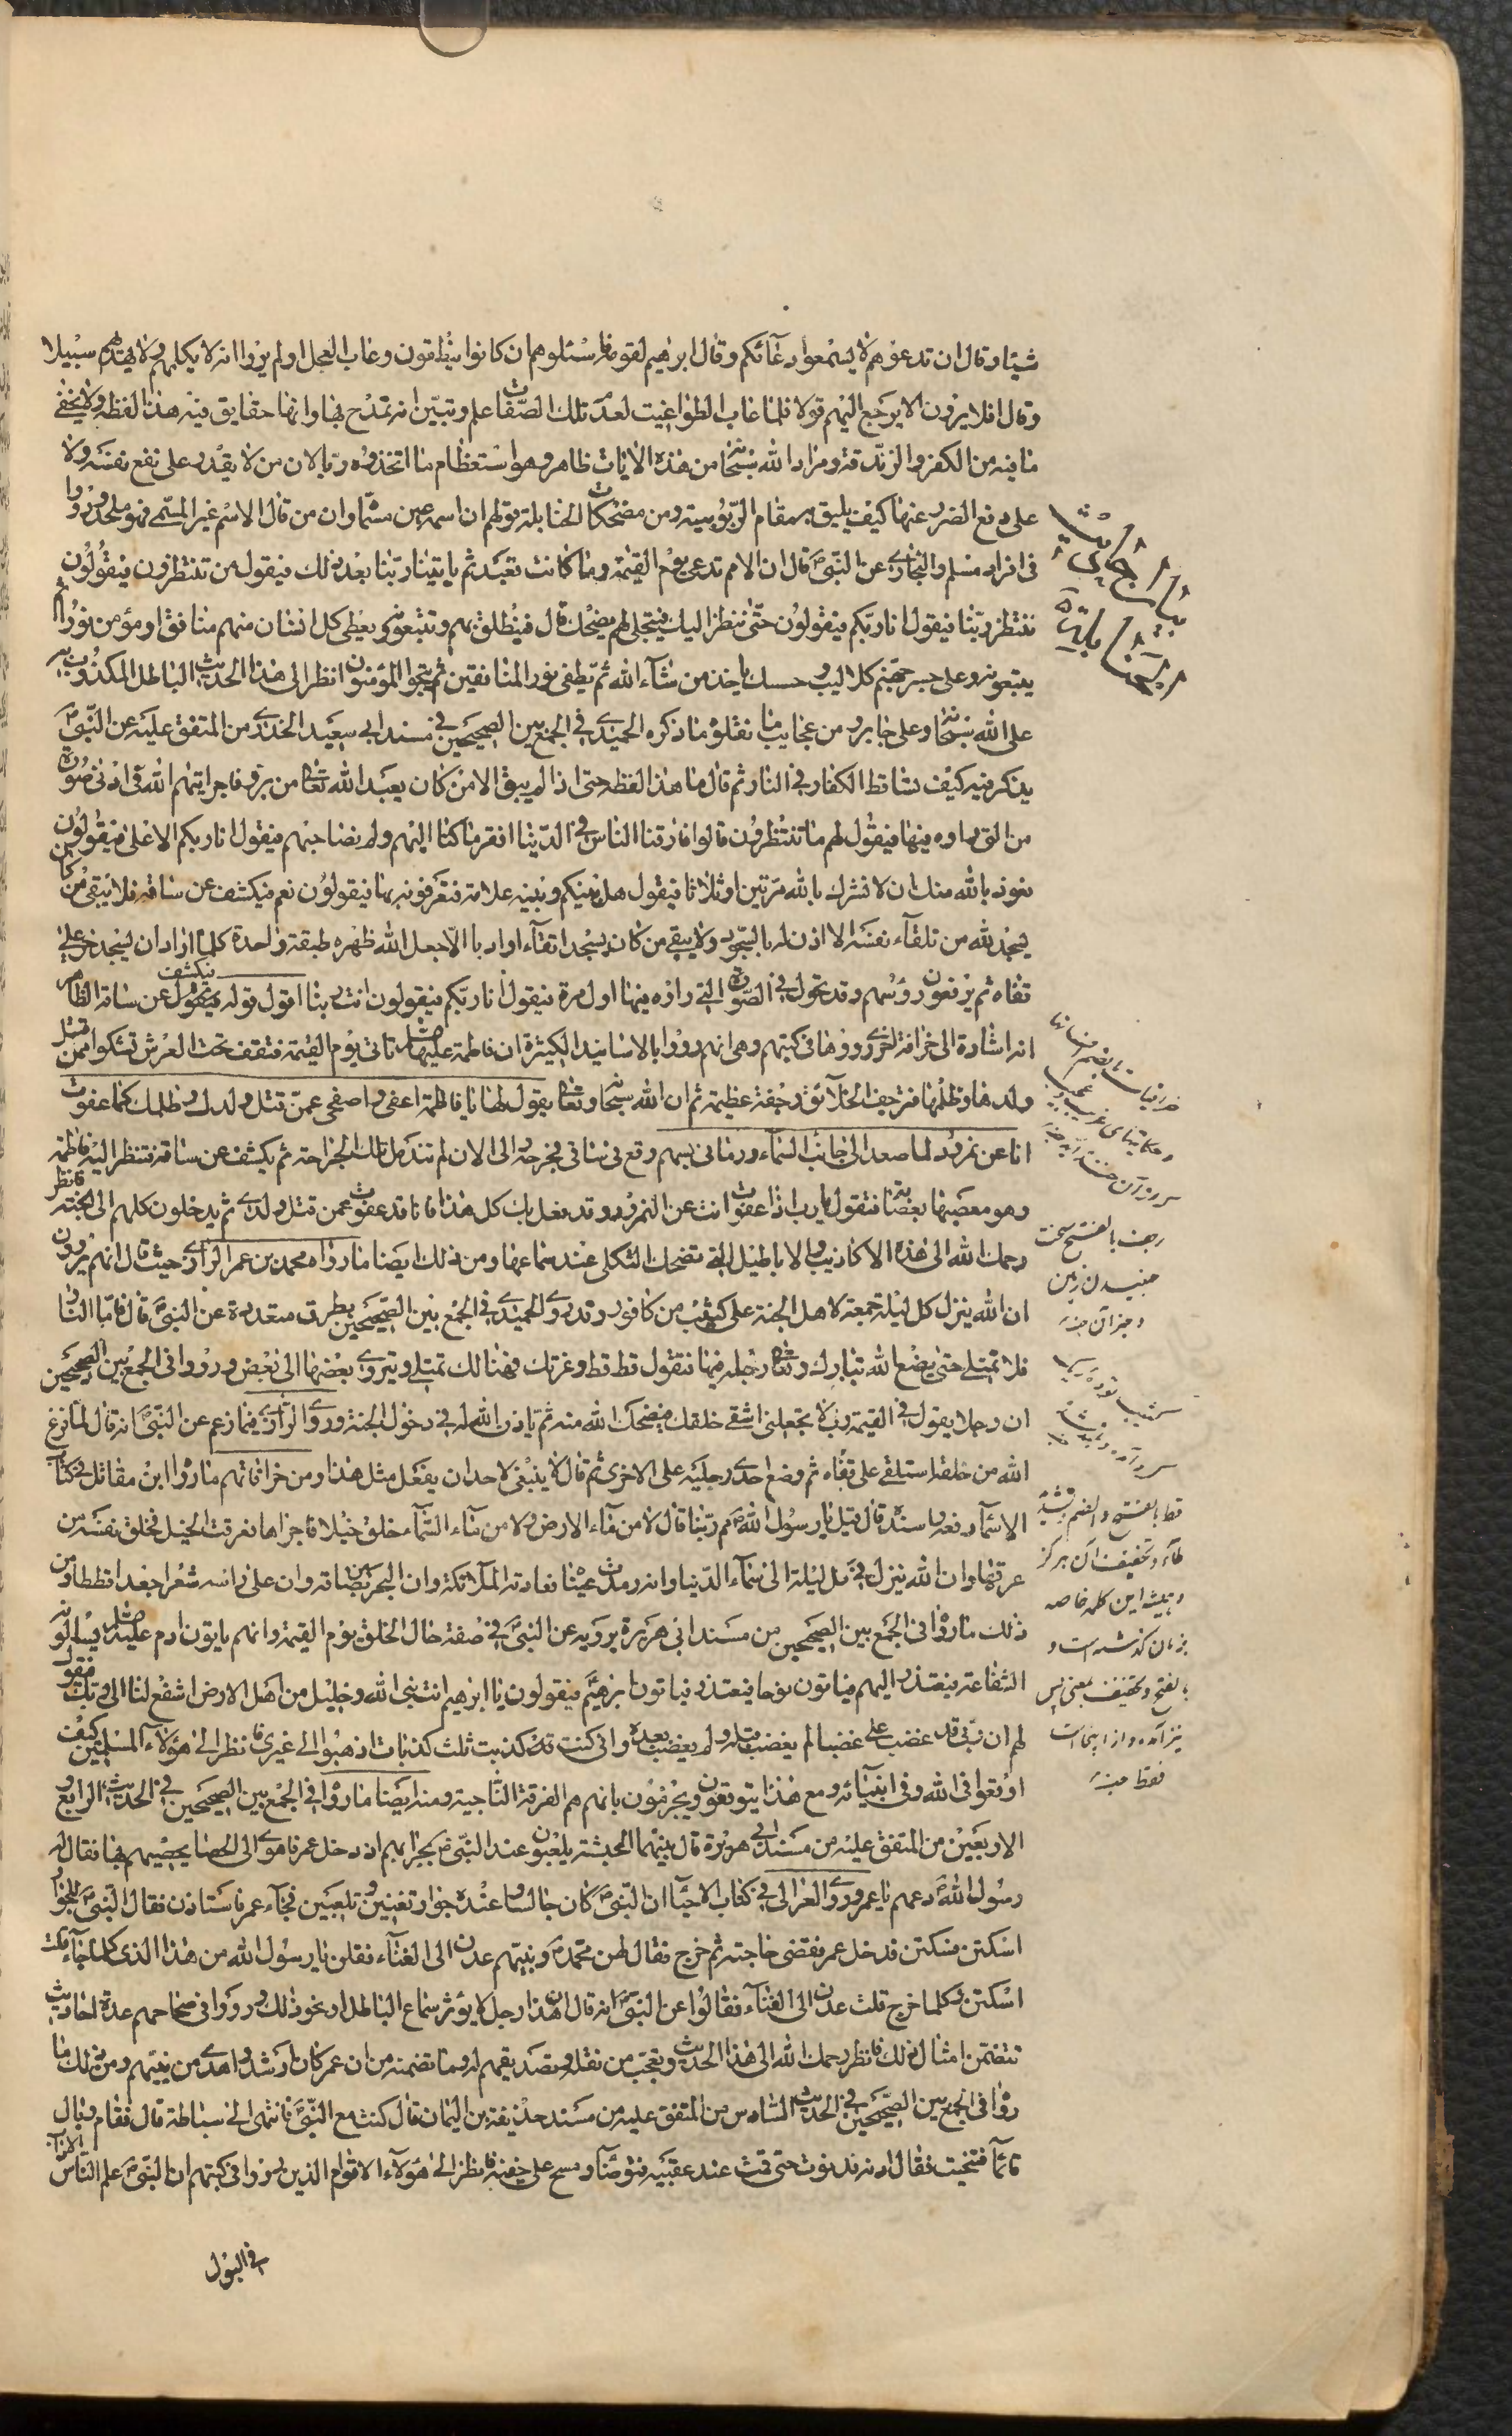 شيئا وقال ان تدعوهم لا يسمعوا دعآئكم وقال ابرهيم لقومه فاسئلوهم ان كانوا ينطقون وعاب العجل اولم يروا انه لا يكلمهم ولا يهديهم سبيلا
وقال افلا يرون الا يرجع اليهم قولا فلما عاب الطواغيت لعدم تلك الصفات علم وتبين انه تمدح بها وانها حقايق فيه هذا لفظه ولا يخفى
ما فيه من الكفر والزندقة ومراد الله سبحانه من هذه الايات ظاهر وهو استعظام ما اتخذوه ربا لان من لا يقدر على نفع نفسه ولا
على دفع الضرر عنها كيف يليق به مقام الربوبية ومن مضحكات الحنابلة قولهم ان اسمه عين مسماه وان من قال الاسم غير المسمى فهو ملحد ورووا
فى افراد مسلم والبخارى عن النبى قال ان الامم تدعى يوم القيمة وما كانت تعبد ثم ياتينا ربنا بعد ذلك فيقول من تنتظرون فيقولون
ننتظر ربنا فيقول انا ربكم فيقولون حتى ننظر اليك فيتجلى لهم يضحك قال فينطلق بهم ويتبعونه ويعطى كل انسان منهم منافق او مؤمن نورا ثم
يتبعونه وعلى جسر جهنم كلاليب وحسك ياخذ من شآء الله ثم يطفى نور المنافقين ثم ينجوا المؤمنون انظر الى هذا الحديث الباطل المكذوب به
على الله سبحانه وعلى جابر ومن عجايب ما نقلوه ما ذكره الحميدى فى الجمع بين الصحيحين فى مسند ابى سعيد الخدرى من المتفق عليه عن النبى
يذكر فيه كيف تساقط الكفار فى النار ثم قال ما هذا لفظه حتى اذا لم يبق الا من كان يعبد الله تعالى من بر وفاجر اتيهم الله فى ادنى صورة
من التى راوه فيها فيقول لهم ما تنتظرون قالوا فارقنا الناس فى الدنيا افقر ما كنا اليهم ولم نصاحبهم فيقول انا ربكم الاعلى فيقولون
نعوذ بالله منك ان لا نشرك بالله مرتين او ثلاثا فيقول هل بينكم وبينه علامة فتعرفونه بها فيقولون نعم فيكشف عن ساقه فلا يبقى من كان
يسجد لله من تلقآء نفسه الا اذن له بالسجود ولا يبقى من كان يسجد اتقآء او ادبا الا جعل الله ظهره طبقة واحدة كلما اراد ان يسجد خر على
قفاه ثم يرفعون رؤسهم وقد تحول فى الصورة التى راوه فيها اول مرة فيقول انا ربكم فيقولون انت ربنا اقول قوله فيكشف عن ساقه الظاهر
انه اشارة الى خرافة اخرى رووها فى كتبهم وهى انهم رووا بالاسانيد الكثيرة ان فاطمة عليها تاتى يوم القيمة فتقف تحت العرش تشكوا ممن قتل
ولدها وظلمها فترجف الخلآئق رجفة عظيمة ثم ان الله سبحانه وتعالى يقول لها يا فاطمة اعفى واصفحى عمن قتل ولدك وظلمك كما عفوت
انا عن نمرود لما صعد الى جانب السمآء ورمانى بسهم وقع فى ساقى فجرحه الى الان لم تندمل تلك الجراحة ثم يكشف عن ساقه فتنظر اليه فاطمة
وهو معصبها فتقول يارب اذا عفوت انت عن النمرود وقد فعل بك كل هذا فانا قد عفوت عمن قتل ولدى ثم يدخلون كلهم الى الجنة فانظر
رحمك الله الى هذه الاكاذيب والاباطيل التى تضحك الثكلى عند سماعها ومن ذلك ايضا ما رواه محمد بن عمر الرازى حيث قال انهم يروون
ان الله ينزل كل ليلة جمعة لاهل الجنة على كثيب من كافور وقد روى الحميدى فى الجمع بين الصحيحين بطرق متعددة عن النبى قال فاما النار
فلا تمتلى حتى يضع الله تبارك وتعالى رجله فيها فتقول قط قط وعزتك فهنالك تمتلى ويزوى بعضها الى بعض ورووا فى الجمع بين الصحيحين
ان رجلا يقول فى القيمة رب لا تجعلنى اشقى خلقك فيضحك الله منه ثم ياذن الله له فى دخول الجنة وروى الرازى فيما زعم عن النبى انه قال لما فرغ
الله من خلقه استلقى على قفاه ثم وضع احدى رجليه على الاخرى ثم قال لا ينبغى لاحد ان يفعل مثل هذا ومن خرافاتهم ما رواه ابن مقاتل فى كتاب
الاسمآء رفعه باسناده قال قيل يا رسول الله مم ربنا قال لا من مآء الارض ولا من مآء السمآء خلق خيلا فاجراها فعرقت الخيل فخلق نفسه من
عرقها وان الله ينزل فى كل ليلة الى سمآء الدنيا وانه رمدت عينا فعادته الملآئكة وان البحر من بصاقه وان على راسه شعرا جعدا قططا ومن
ذلك ما رووا فى الجمع بين الصحيحين من مسند ابى هريرة يرويه عن النبى فى صفة حال الخلق يوم القيمة وانهم ياتون ادم عليه ويسالونه
الشفاعة فيعتذر اليهم فياتون نوحا فيعتذر فياتون ابرهيم فيقولون يا ابرهيم انت نبى الله وخليل من اهل الارض اشفع لنا الى ربك فيقول
لهم ان ربى قد غضب على غضبا لم يغضب قبله ولم يغضب بعده وانى كنت قد كذبت ثلث كذبات اذهبوا الى غيرى فانظر الى هؤلآء المسلمين كيف
اوقعوا فى الله وفى انبيآئه ومع هذا يتوقعون ويجزمون بانهم هم الفرقة الناجية ومنه ايضا ما رووا فى الجمع بين الصحيحين فى الحديث الرابع و
الاربعين من المتفق عليه من مسند ابى هريرة قال بينما الحبشة يلعبون عند النبى بحرابهم اذ دخل عمر فاهوى الى الحصبا يحصبهم بها فقال له
رسول الله دعهم يا عمر وروى الغزالى فى كتاب الاحيآء ان النبى كان جالسا وعنده جوار تغنين وتلعبين فجآء عمر فاستاذن فقال النبى للجوار
اسكتن فسكتن فدخل عمر فقضى حاجته ثم خرج فقال لهن محمد ونبيهم عدن الى الغنآء فقلن يا رسول الله من هذا الذى كلما جآء قلت
اسكتن وكلما خرج قلت عدن الى الغنآء فقالوا عن النبى انه قال ان هذا رجل لا يؤثر سماع الباطل او نحو ذلك ورووا فى صحاحهم عدة احاديث
تتضمن امثال ذلك فانظر رحمك الله الى هذا الحديث وتعجب من نقله وتصديقهم له وما تضمنه من ان عمر كان ارشد واهدى من نبيهم ومن ذلك ما
رووا فى الجمع بين الصحيحين فى الحديث السادس من المتفق عليه من مسند حذيفة بن اليمان قال كنت مع النبى فانتهى الى سباطة قال فقام وبال
قآئما فتنحيت فقال ادنه فدنوت حتى قمت عند عقبيه فتوضا ومسح على خفيه فانظر الى هؤلآء الاقوام الذين رووا فى كتبهم ان النبى علم الناس الاداب
فى البول
رجف بالفتح سخت
جنبيدن زمين
و جز آن
قط بالفتح والضم وتشديد
طآء وتخفيف آن هركز
و هميشه اين كلمه خاصه
بزمان كذشته است و
بالفتح وتخفيف بمعنى بس
نيز آمده و از اينجا است
فقط